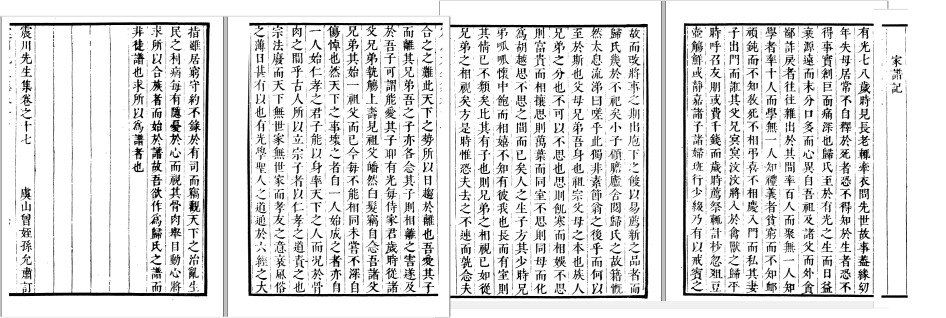 家譜記
有光七八歲時見長老輒牽衣問先世故事蓋緣幼
年失母居常不自釋於死者恐不得知於生者恐不
得事實創巨而痛深也歸氏至於有光之生而日益
衰源遠而末分口多而心異自吾祖及諸父而外貪
鄙詐戾者往往雜出於其間率百人而聚無一人知
學者率十人而學無一人知禮義者貧窮而不知卹
頑鈍而不知教死不相弔喜不相慶入門而私其妻
子出門而誑其父兄冥冥汶汶將入於禽獸之歸平
時呼召友朋或費千錢而歲時薦祭輒計杪忽俎豆
壺觴鮮或靜嘉諸子諸婦班行少綴乃有以戒賓之
故而改將事之期出庖下之餕以易薦新之品者而
歸氏幾於不祀矣小子顧瞻廬舍閱歸氏之故籍慨
然太息流涕曰嗟乎此獨非素節翁之後乎而何以
至於斯也父母兄弟吾身也祖宗父母之本也族人
兄弟之分也不可以不思也思則飢寒而相娛不思
則富貴而相攘思則萬葉而同室不思則同母而化
為胡越思不思之間而已矣人之生子方其少時兄
弟呱呱懷中飽而相嬉不知有彼我也長而有室則
其情已不類矣比其有子也則兄弟之相視已如從
兄弟之相視矣方是時惟恐夫去之不速而孰念夫
合之之難此天下之勢所以日趨於離也吾愛其子
而離其兄弟吾之子亦各念其子則相離之害遂及
於吾子可謂能愛其子耶有光每侍家君歲時從諸
父兄弟執觴上壽見祖父皤然白髮竊自念吾諸父
兄弟其始一祖父而已今每不能相同未嘗不深自
傷悼也然天下之事壞之者自一人始成之者亦自
一人始仁孝之君子能以身率天下之人而況於骨
肉之間乎古人所以立宗子者以仁孝之道責之也
宗法廢而天下無世家無世家而孝友之意衰風俗
之薄日甚有以也有光學聖人之道通於六經之大
指雖居窮守約不錄於有司而竊觀天下之治亂生
民之利病每有隱憂於心而視其骨肉舉目動心將
求所以合族者而始於譜故吾欲作為歸氏之譜而
非徒譜也求所以為譜者也
震川先生集卷之十七　虞山曾姪孫允肅訂